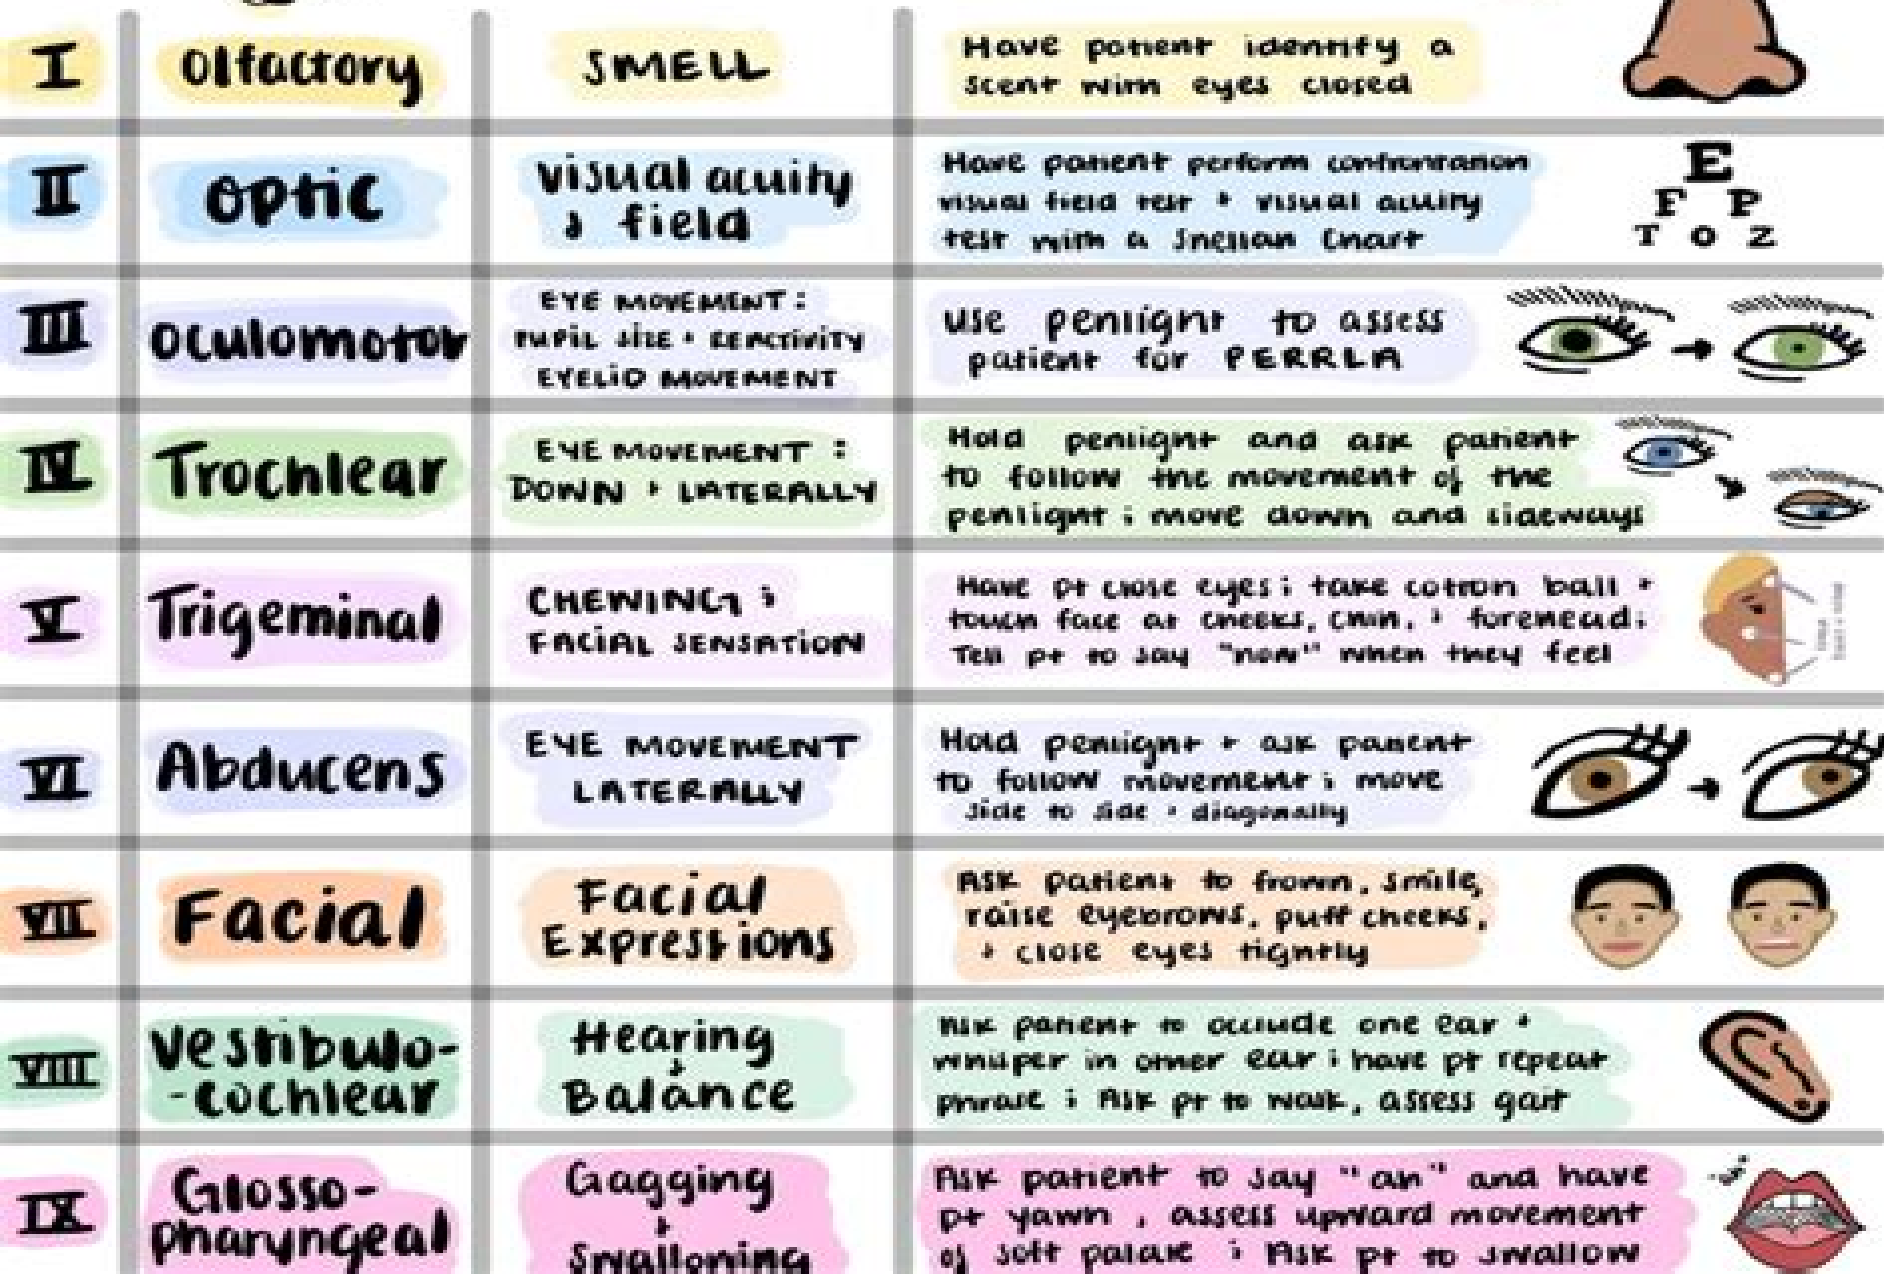 I
Olfactory
SMELL
Have patient identify a
scent with eyes closed
II
Optic
visual acuity
& field
Have patient perform confrontation
visual field test + visual acuity
test with a Snellan Chart
E
F P
T O Z
III
Oculomotor
EYE MOVEMENT:
PUPIL SIZE + REACTIVITY
EYELID MOVEMENT
Use penlight to assess
patient for PERRLA
IV
Trochlear
EYE MOVEMENT :
DOWN + LATERALLY
Hold penlight and ask patient
to follow the movement of the
penlight ; move down and sideways
V
Trigeminal
CHEWING ;
FACIAL SENSATION
Have pt close eyes ; take cotton ball +
touch face at cheeks, chin, + forehead;
Tell pt to say "now" when they feel
VI
Abducens
EYE MOVEMENT
LATERALLY
Hold penlight + ask patient
to follow movement ; move
side to side + diagonally
VII
Facial
Facial
Expressions
Ask patient to frown, smile,
raise eyebrows, puff cheeks,
+ close eyes tightly
VIII
Vestibulo-
-cochlear
Hearing
+
Balance
Ask patient to occlude one ear +
whisper in other ear ; have pt repeat
phrase ; Ask pt to walk, assess gait
IX
Glosso-
pharyngeal
Gagging
+
Swallowing
Ask patient to say "ah" and have
pt yawn , assess upward movement
of soft palate ; Ask pt to swallow